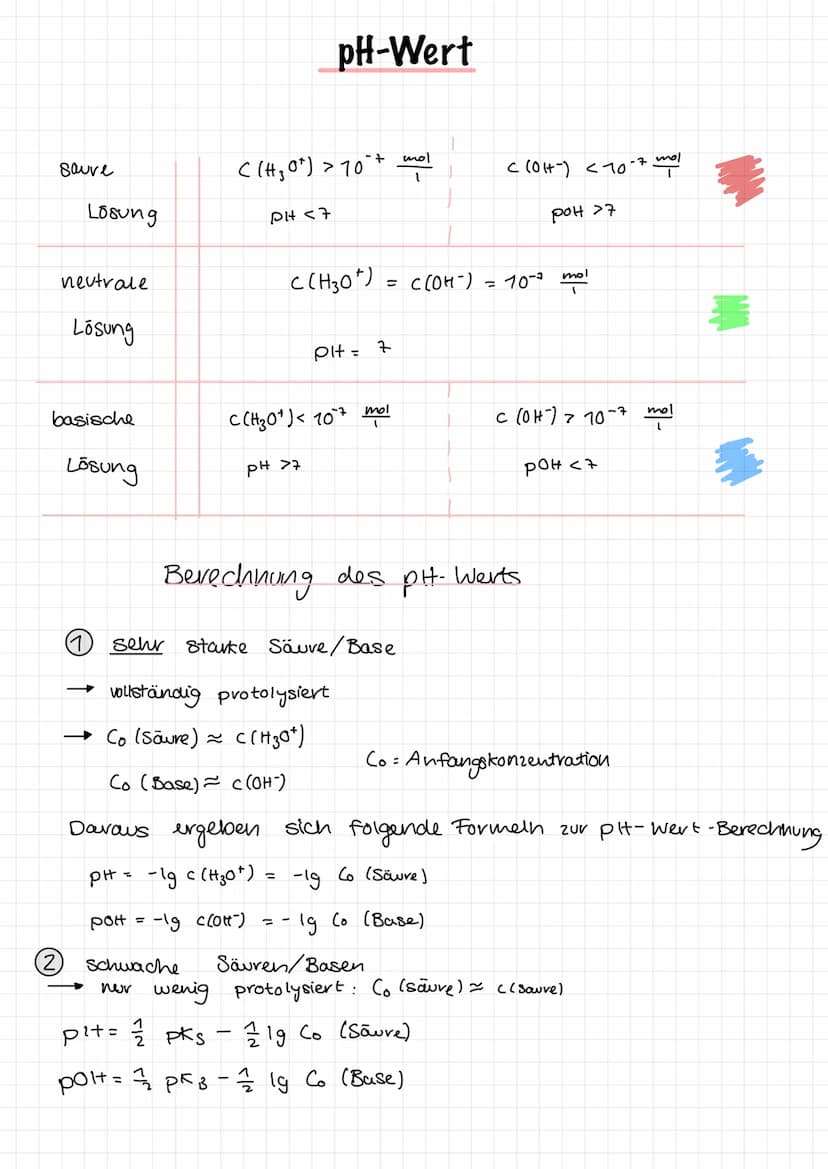 pH-Wert
saure c(H₃O⁺) > 10⁻⁷ mol/l c(OH⁻) < 10⁻⁷ mol/l
Lösung pH < 7 pOH > 7
neutrale c(H₃O⁺) = c(OH⁻) = 10⁻⁷ mol/l
Lösung
pH = 7
basische c(H₃O⁺) < 10⁻⁷ mol/l c(OH⁻) > 10⁻⁷ mol/l
Lösung pH > 7 pOH < 7
Berechnung des pH-Werts
① sehr starke Säure/Base
→ vollständig protolysiert
→ C₀ (Säure) ≈ c(H₃O⁺)
C₀ = Anfangskonzentration
C₀ (Base) ≈ c(OH⁻)
Daraus ergeben sich folgende Formeln zur pH-Wert-Berechnung
pH = -lg c(H₃O⁺) = -lg C₀ (Säure)
pOH = -lg c(OH⁻) = -lg C₀ (Base)
② schwache Säuren/Basen
→ nur wenig protolysiert: C₀ (säure) ≈ c(säure)
pH = ½ pKs - ½ lg C₀ (Säure)
pOH = ½ pKB - ½ lg C₀ (Base)